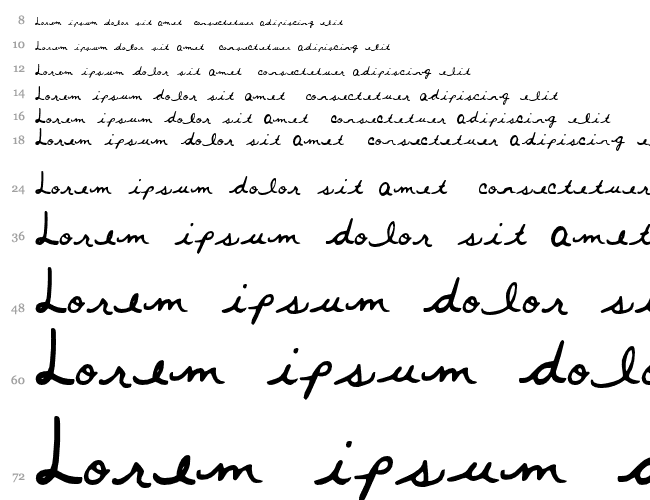 8 Lorem ipsum dolor sit amet consectetuer adipiscing elit
10 Lorem ipsum dolor sit amet consectetuer adipiscing elit
12 Lorem ipsum dolor sit amet consectetuer adipiscing elit
14 Lorem ipsum dolor sit amet consectetuer adipiscing elit
16 Lorem ipsum dolor sit amet consectetuer adipiscing elit
18 Lorem ipsum dolor sit amet consectetuer adipiscing e
24 Lorem ipsum dolor sit amet consectetuer
36 Lorem ipsum dolor sit amet
48 Lorem ipsum dolor si
60 Lorem ipsum dolo
72 Lorem ipsum d